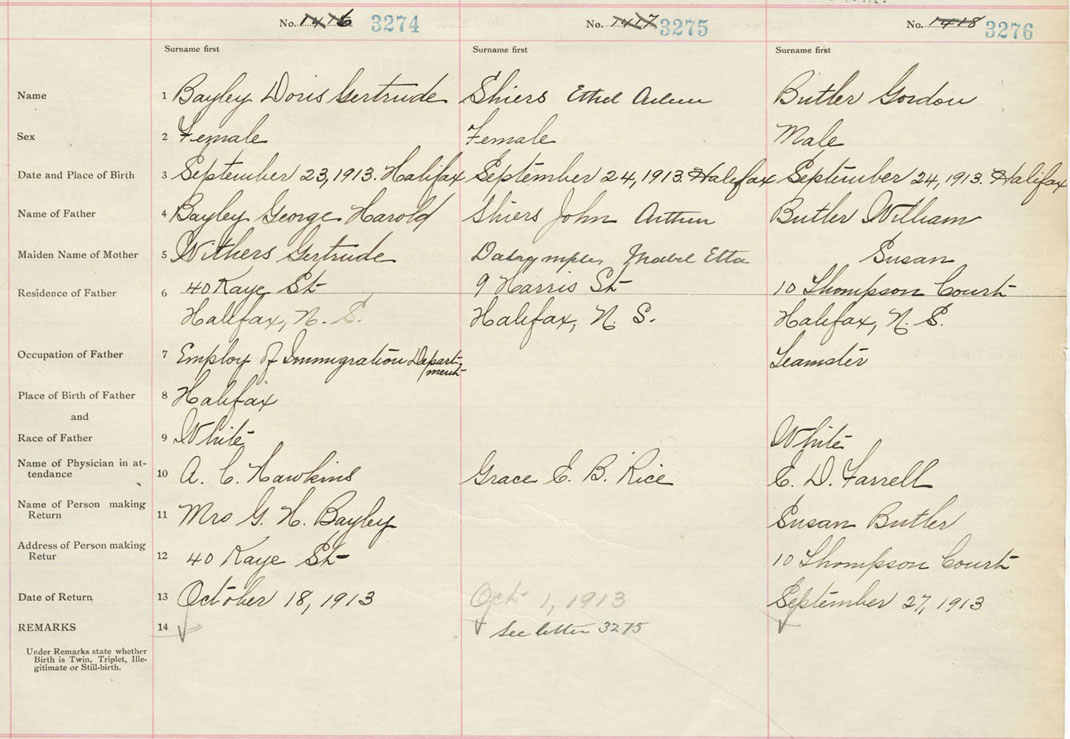 No. 1416 3274 No. 1417 3275 No. 1418 3276
Surname first Surname first Surname first
Name 1 Bayley Doris Gertrude Shiers Ethel Butler Gordon
Sex 2 Female Female Male
Date and Place of Birth 3 September 23, 1913. Halifax September 24, 1913. Halifax September 24, 1913. Halifax
Name of Father 4 Bayley George Harold Shiers John Arthur Butler William
Maiden Name of Mother 5 Withers Gertrude Dalrymple, Mabel Etta Susan
Residence of Father 6 40 Kaye St 9 Harris St 10 Thompson Court
Halifax, N. S. Halifax, N. S. Halifax, N. S.
Occupation of Father 7 Employ of Immigration Depart- Teamster
ment
Place of Birth of Father 8 Halifax
and
Race of Father 9 White White
Name of Physician in at-
tendance 10 A. C. Hawkins Grace E. B. Rice E. D. Farrell
Name of Person making
Return 11 Mrs G. H. Bayley Susan Butler
Address of Person making
Retur 12 40 Kaye St 10 Thompson Court
Date of Return 13 October 18, 1913 Oct 1, 1913 September 27, 1913
REMARKS 14 See letter 3275
Under Remarks state whether
Birth is Twin, Triplet, Ille-
gitimate or Still-birth.